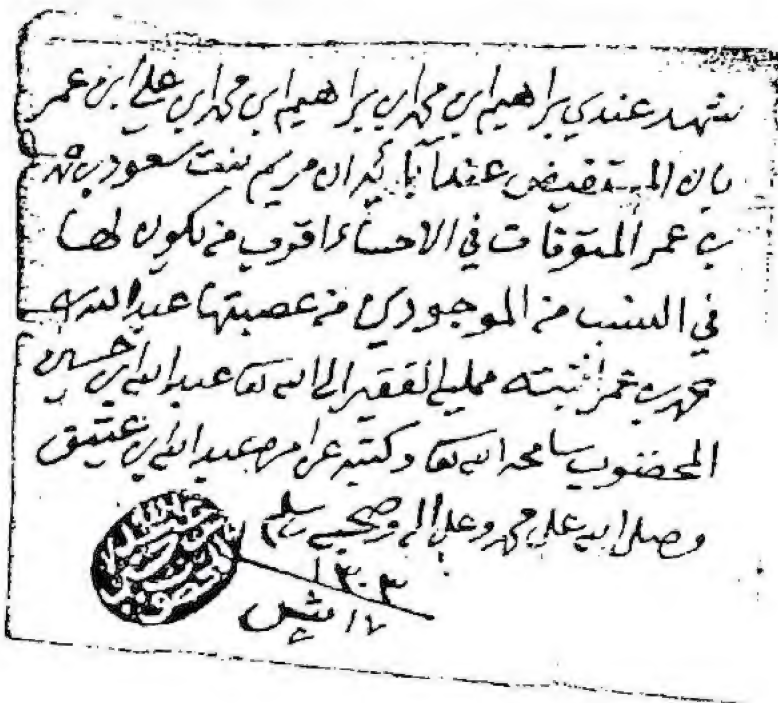 شهد عندي براهيم ابن محمد ابن براهيم ابن محمد ابن علي ابن عمر
بان المستفيض عند ان مريم بنت سعود بن
بن عمر المتوفات في الاحساء اقرب من يكون لها
في النسب من الموجودين من عصبتها عبدالله بن
محمد بن عمر اثبته ممليه الفقير الى الله تعا عبدالله ابن حسين
المخضوب سامحه الله تعا وكتبه عن امره عبدالله ابن عتيق
وصلى الله على محمد وعلى اله وصحبه وسلم
١٣٠٣
١٧